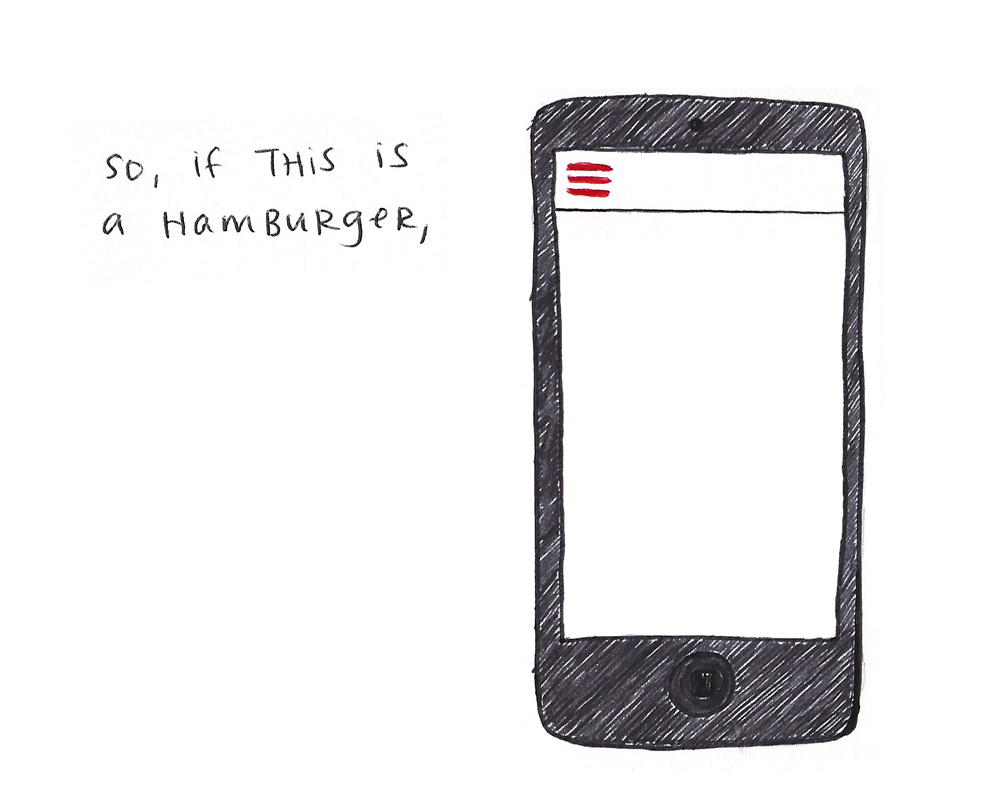 so, if THIS is
a HamBURGeR,